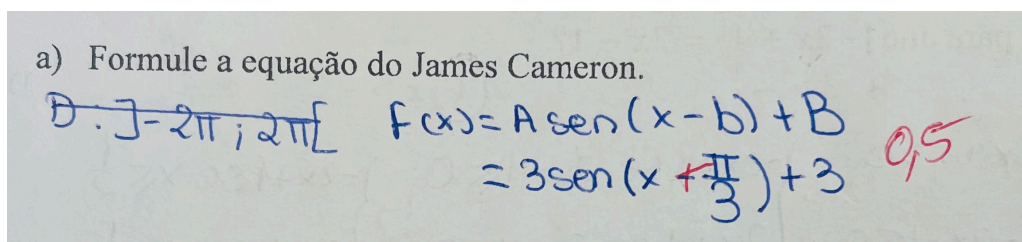 a) Formule a equação do James Cameron.
D: ]-2π; 2π[ f(x) = A sen(x-b) + B 0,5
= 3 sen(x + π/3) + 3